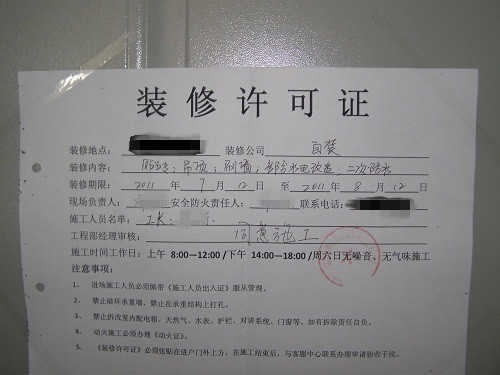 装修许可证
装修地点： 装修公司 自装
装修内容： 吊顶；刷墙；部份水电改造；二次防水
装修期限： 2011 年 7 月 12 日 至 2011 年 8 月 12 日
现场负责人： 安全防火责任人： 联系电话：
施工人员名单：工长：
工程部经理审核： 同意施工
施工时间工作日：上午 8:00—12:00 /下午 14:00—18:00 /周六日无噪音、无气味施工
注意事项：
1. 进场施工人员必须佩带《施工人员出入证》服从管理。
2. 禁止破坏承重墙，禁止在承重结构上打孔。
3. 禁止拆改室内配电箱、天然气、水表、护栏、对讲系统、门窗等，如有拆除责任自负。
4. 动火施工必须办理《动火证》。
5. 《装修许可证》必须张贴在进户门外上方，在施工结束后，与客服中心联系办理审请验收手续。